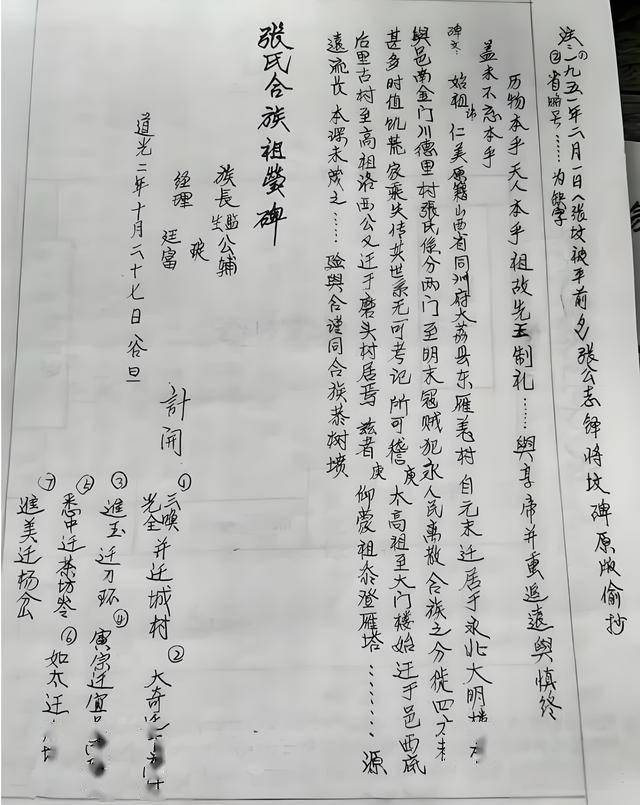 注:①一九五一年六月一日(张坟被平前夕)张公志铎将坟碑原版偷抄
②省略号……为缺字
历物本乎天人本乎祖故先王制礼……与享帝并重追远与慎终
盖未不忘本乎
碑文:始祖讳仁美原籍山西省同州府大荔县东雁羌村自元末迁居于永北大明
与邑南金门川德里村张氏系分两门至明末冠贼犯永人民离散合族之分徙四方未
甚多时值饥荒家乘失传其世系无可考记所可稽庚太高祖至大门楼始迁于邑西底
后里古村至高祖洛西公又迁于磨头村居焉兹者庚仰蒙祖泰登雁塔………源
远流长本深末茂之……验与合谨同合族恭树坟
張氏合族祖塋碑
族長監生公輔
经理珽廷富
道光二年十月二十七日谷旦
計開
①三唤光全并迁城村②大奇
③進玉迁刀环④寅宗迁宜
⑤悉中迁茶坊岺⑥如太迁
⑦進美迁杨